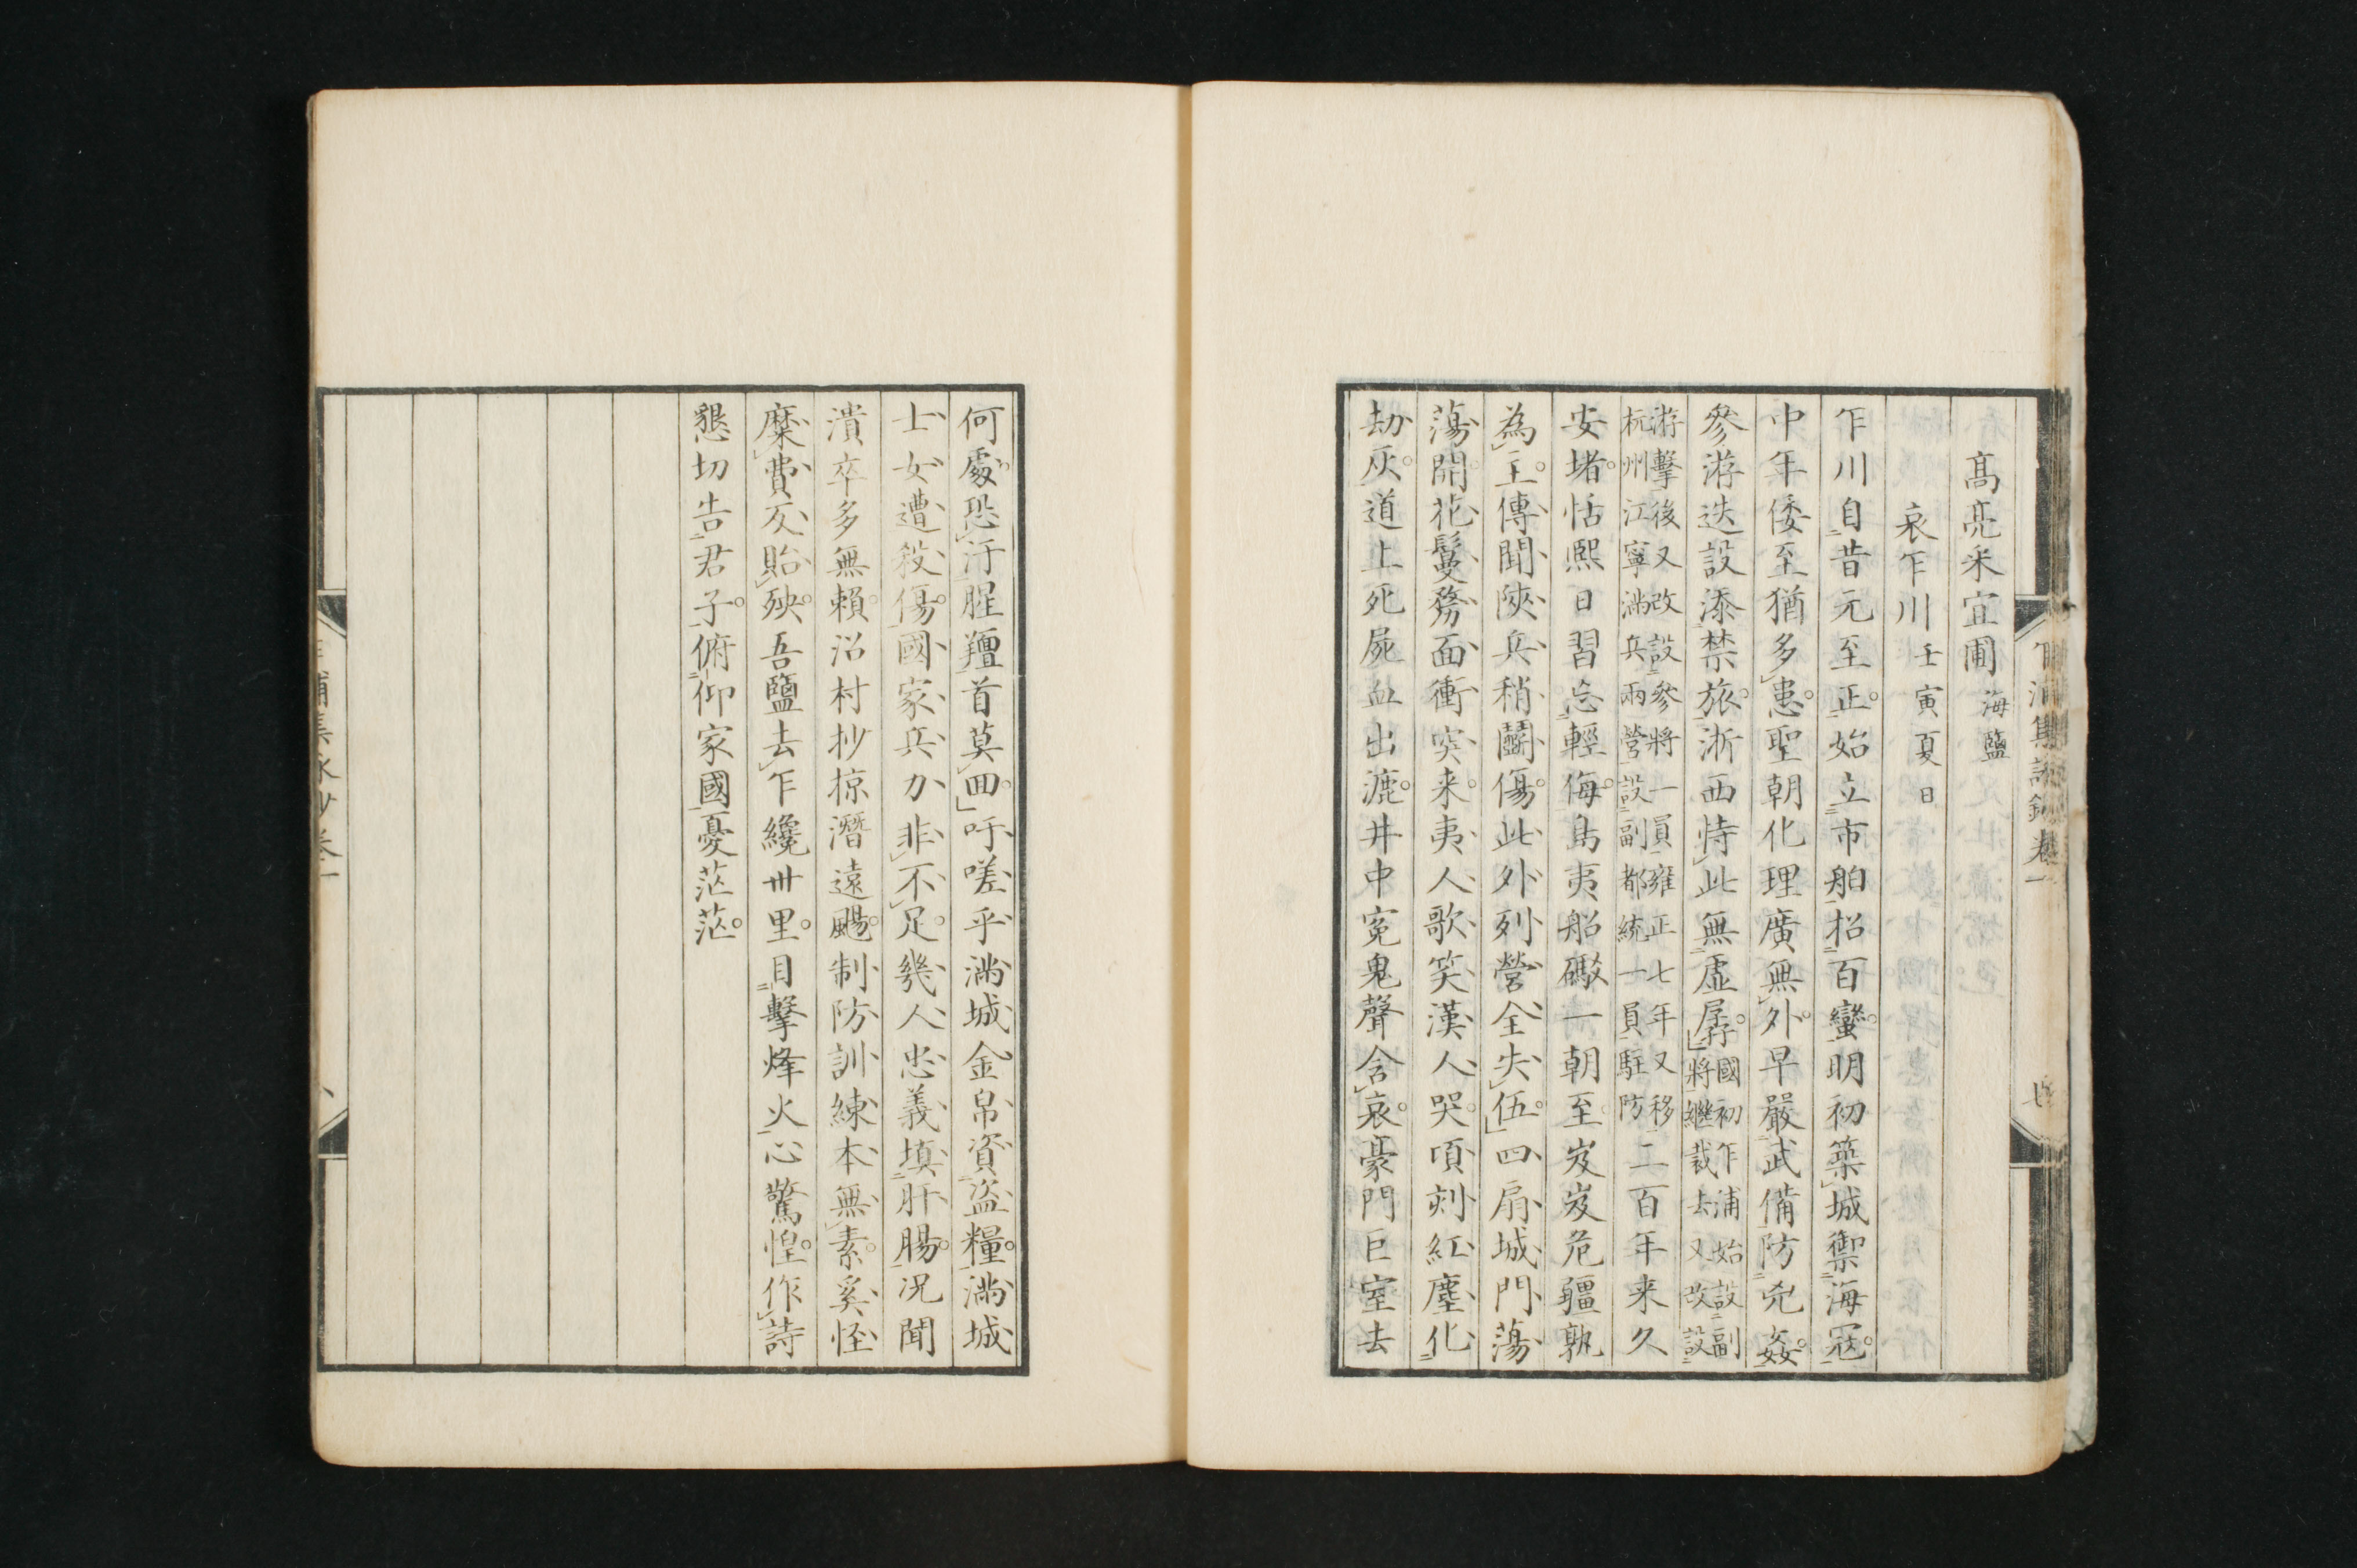 高亮采宜圃海鹽
哀乍川壬寅夏日
乍川自昔元至正始立市舶招百蠻明初築城禦海寇
中年倭至猶多患聖朝化理廣無外早嚴武備防兇姦
參游迭設添禁旅浙西恃此無虞孱國初乍浦始設副將繼裁去又改設
游擊後又改設參將一員雍正七年又移杭州江寧滿兵兩營設副都統一員駐防二百年来久
安堵恬熙日習忘輕侮島夷船礮一朝至岌岌危疆孰
為主傳聞陝兵稍鬭傷此外列營全失伍四扇城門蕩
蕩開花鬘剺面衝突来夷人歌笑漢人哭頃刻紅塵化
劫灰道上死屍血出漉井中寃鬼聲含哀豪門巨室去
何處恐汙腥羶首莫回吁嗟乎滿城金帛資盜糧滿城
士女遭殺傷國家兵力非不足幾人忠義填肝腸况聞
潰卒多無賴沿村抄掠潛遠颺制防訓練本無素奚怪
糜費反貽殃吾鹽去乍纔卅里目擊烽火心驚惶作詩
懇切告君子俯仰家國憂茫茫